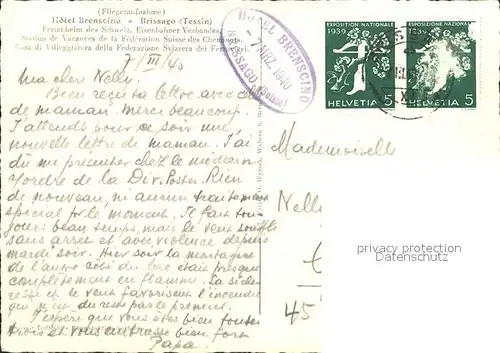 (Fliegeraufnahme)
Hôtel Brenscino - Brissago (Tessin)
Ferienheim des Schweiz. Eisenbahner-Verbandes.
Station de Vacances de la Fédération Suisse des Cheminots.
Casa di Villeggiatura della Federazione Svizzera dei Ferrovieri.
HOTEL BRENSCINO
7 MRZ. 1940
BRISSAGO
EXPOSITION NATIONALE
1939
HELVETIA 5
ESPOSIZIONE NAZIONALE
1939
HELVETIA 5
7/III/40
Ma chère Nelly.
Bien reçu ta lettre avec
de maman. Merci beaucoup.
J'attends pour ce soir une
nouvelle lettre de maman. J'ai
dû me présenter chez le médecin
d'ordre de la Div. Postes. Rien
de nouveau, ni aucun traitement
spécial pr. le moment. Il fait tou-
jours beau temps, mais le vent souffle
sans arrêt et avec violence depuis
mardi soir. Hier soir la montagne
de l'autre côté du lac était presque
complètement en flamme. La séche-
resse et le vent favorisent l'incendie
qui n'est du reste pas le premier.
J'espère que vous êtes bien toutes
trois et vous embrasse bien fort
Papa.
Mademoiselle
Nelly
45
privacy protection
Datenschutz